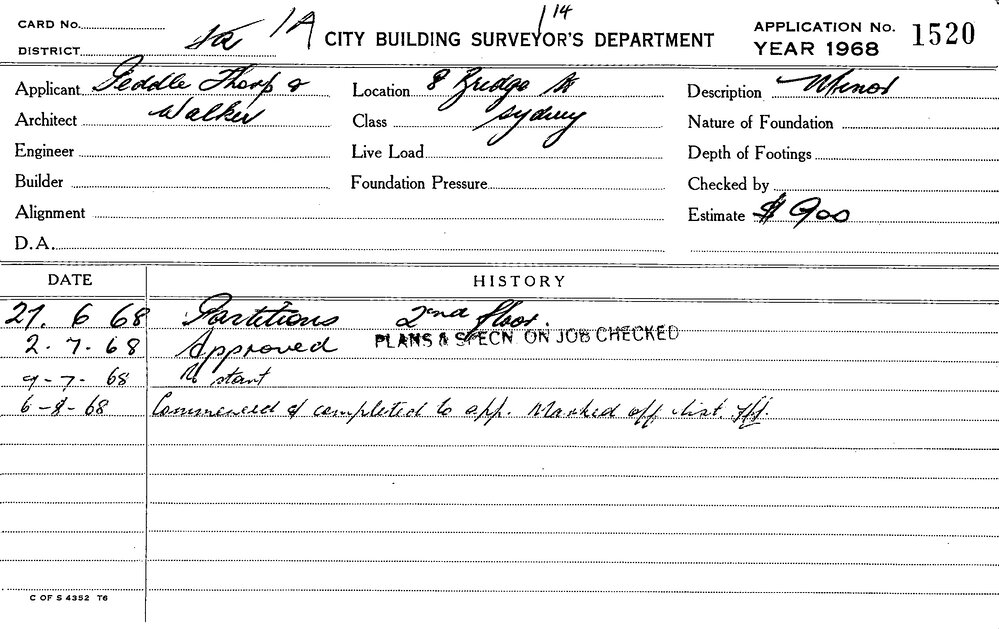 CARD No.
DISTRICT
1A
14
CITY BUILDING SURVEYOR'S DEPARTMENT
APPLICATION No. 1520
YEAR 1968
Applicant Peddle Thorp &
Architect Walker
Engineer
Builder
Alignment
D.A.
Location 8 Bridge St
Class Sydney
Live Load
Foundation Pressure
Description Minor
Nature of Foundation
Depth of Footings
Checked by
Estimate $ 900
DATE HISTORY
27. 6 68 Partitions 2nd floor.
2-7-68 Approved PLANS & SPECN ON JOB CHECKED
9-7-68 start
6-8-68 Commenced & completed to app. Marked off list.
C OF S 4352 T6